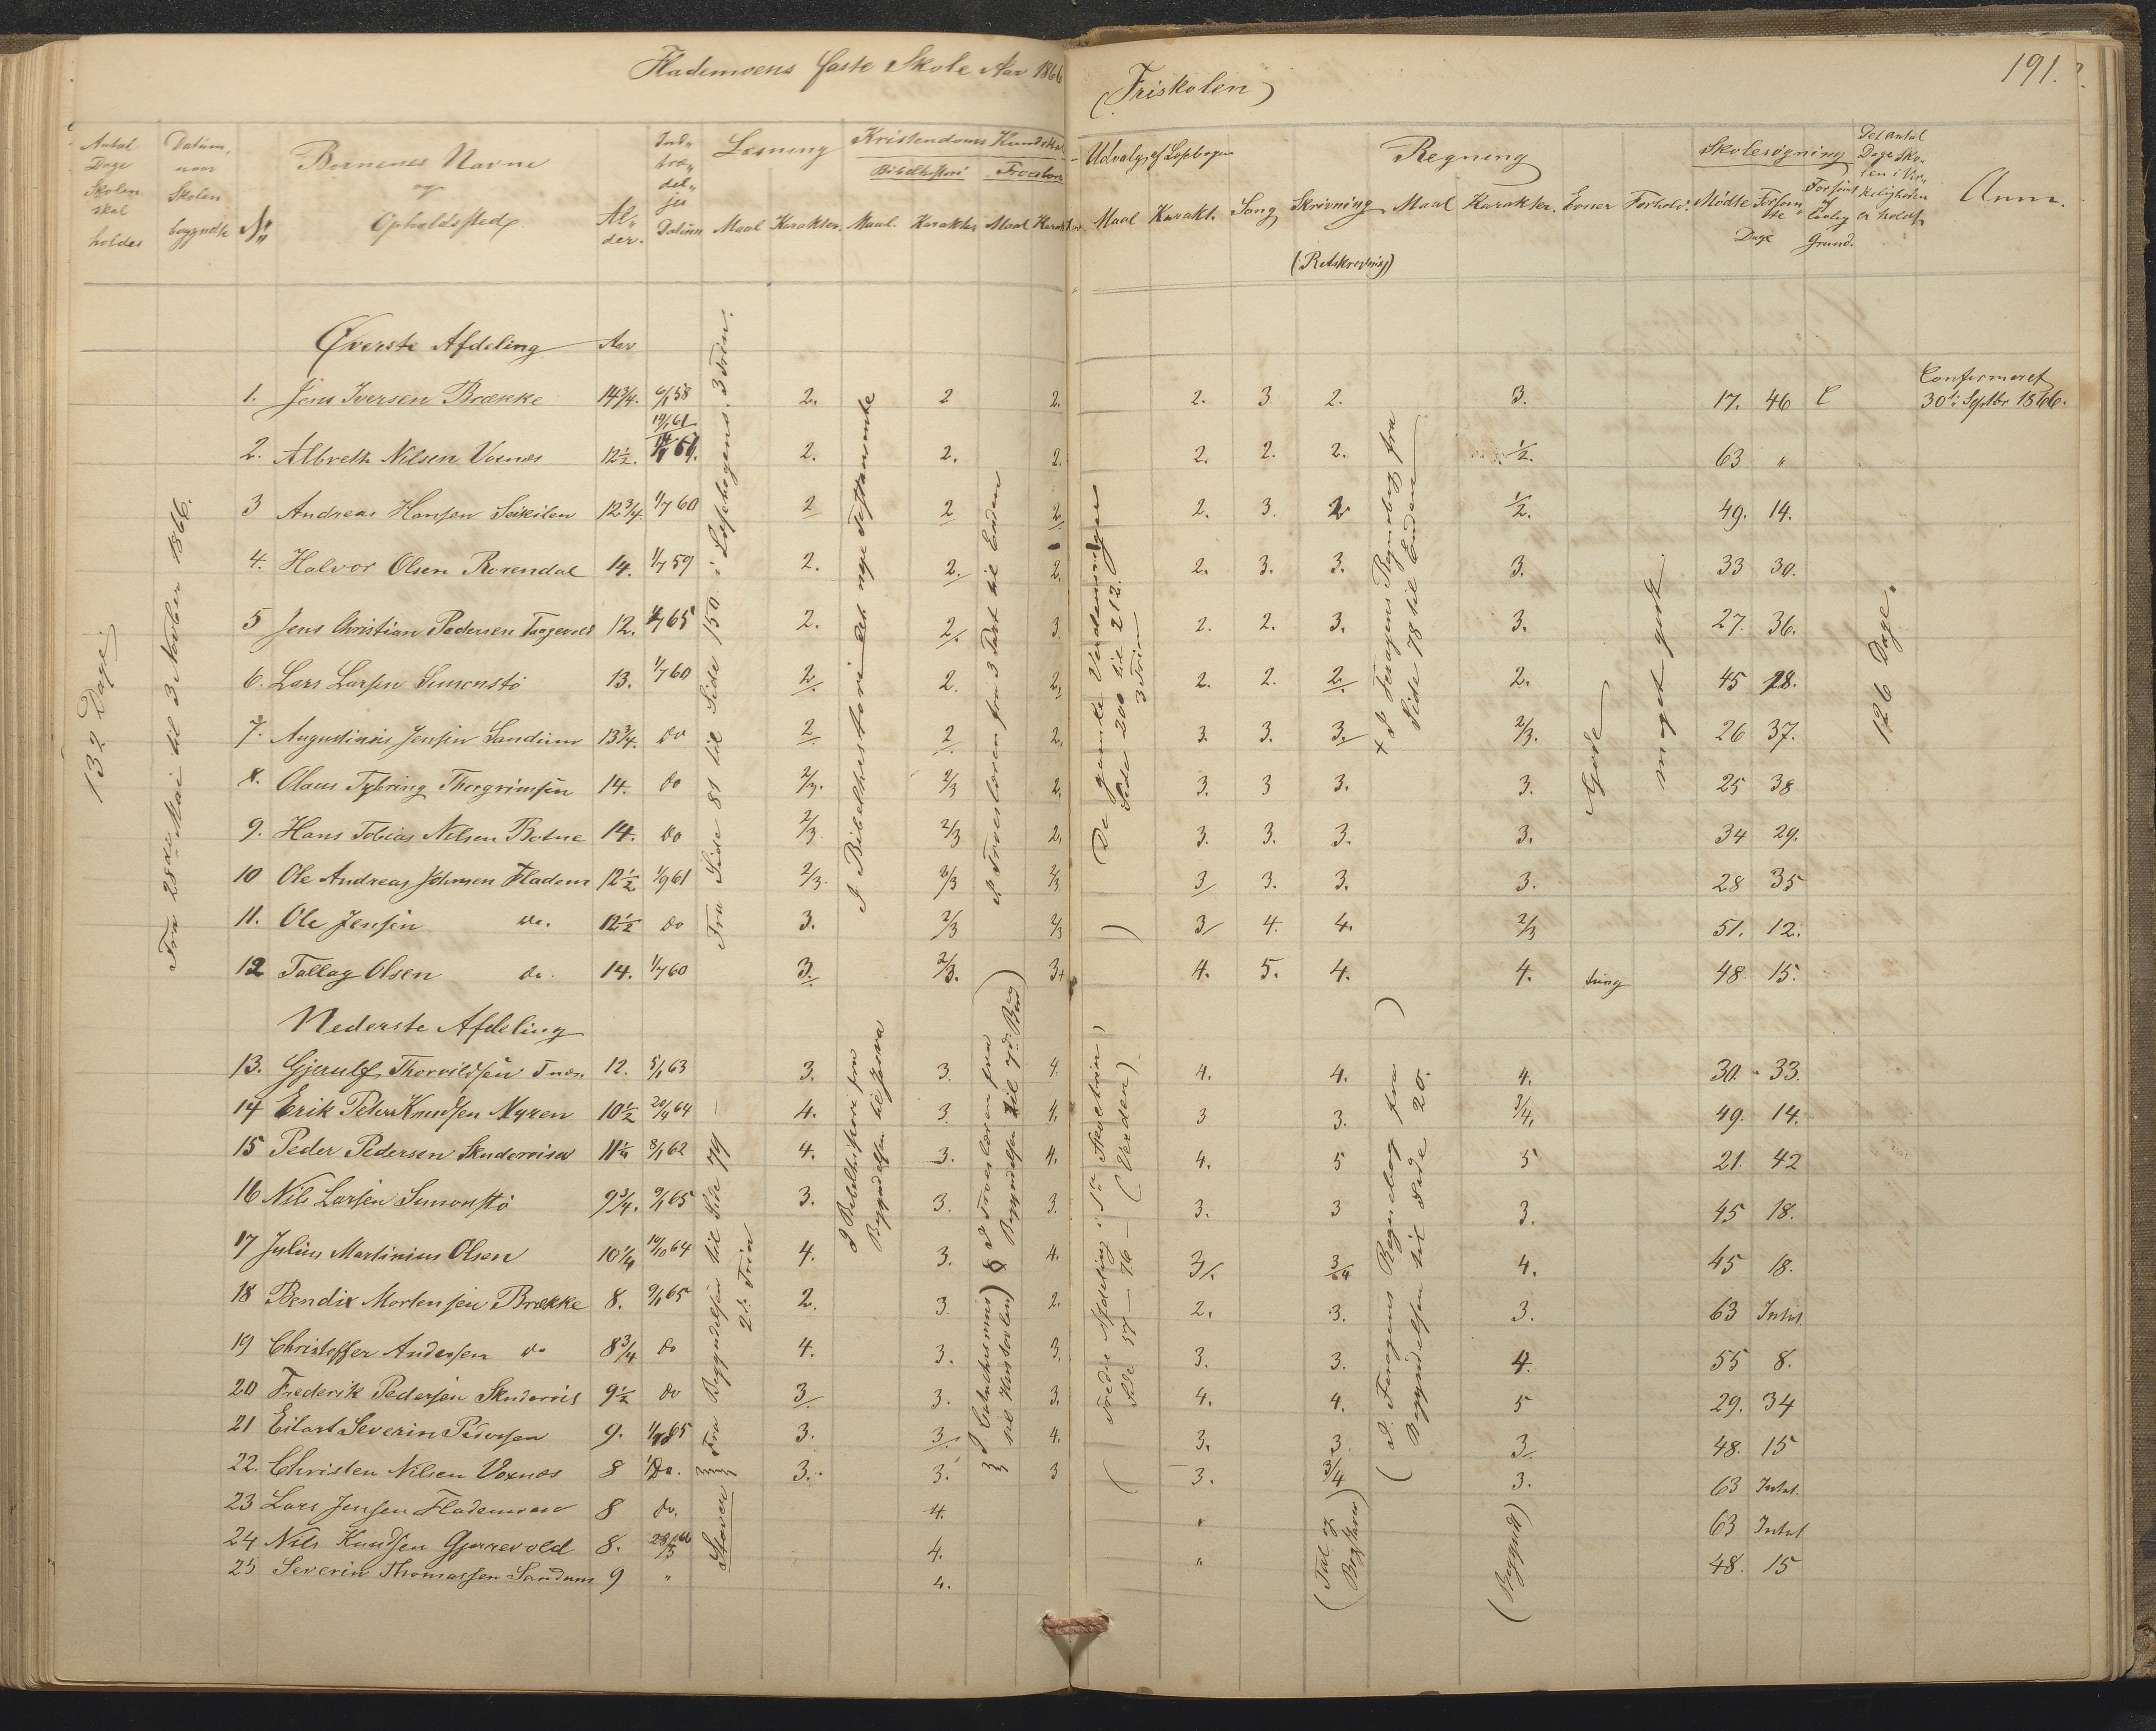 Flademoens faste Skole Aar 1866
(Friskolen)
191.
Antal Dage Skolen skal holdes
Datum, naar Skolen begyndte
№
Børnenes Navne og Opholdssted
Al-der.
Ind-træ-del-ses Datum
Læsning
Maal Karakter.
Kristendoms Kundskab
Bibelhistorie Troeslære
Maal. Karakter Maal Karakter
Udvalg af Læsebogen
Maal Karakt.
Sang
Skrivning
(Retskrivning)
Regning
Maal Karakter.
Evner
Forhold.
Skolesøgning
Mødte Forsømte Dage
Forsømt af lovlig Grund.
Det antal Dage Skolen i Virkeligheden er holdt
Anm.
132 Dage
Fra 28de Mai til 3 Novber 1866.
Øverste Afdeling Aar
1. Jens Iversen Brække 14 3/4. 6/1 58 2. 2 2. 2. 3 2. 3. 17. 46 Confirmeret 30te Septbr 1866.
2. Albreth Nilsen Voxnæs 12 1/2. 61. 2. 2. 2. 2. 2. 2. 1/2. 63 "
3 Andreas Hansen 12 3/4. 1/7 60 2 2 2 2. 3. 2 1/2. 49. 14.
4. Halvor Olsen Rorendal 14. 1/7 59 2. 2. 2. 2. 3. 3. 3. 33 30.
5 Jens Christian Pedersen 12. 1/7 65 2. 2. 3. 2. 2. 3. 3. 27. 36.
6. Lars Larsen Simonstø 13. 1/7 60 2. 2. 2. 2. 2. 2. 2. 45 18.
7. Augustinus Jensen Sandum 13 3/4. do 2. 2. 2. 3. 3. 3. 2/3. 26 37.
8. Olaus Tybring Thorgrimsen 14. do 2/3. 2/3 2. 3. 3 3. 3. 25 38
9. Hans Tobias Nilsen Botne 14. do 2/3 2/3 2. 3. 3. 3. 3. 34 29.
10 Ole Andreas Johnsen Fladem 12 1/2 1/9 61 2/3. 2/3 2/3 3 3. 3. 3. 28 35
11. Ole Jensen do. 12 1/2 do 3. 2/3 2/3 3 4. 4. 2/3 51. 12.
12 Tallag Olsen do. 14. 1/7 60 3. 2/3. 3. 4. 5. 4. 4. tung 48 15.
Fra Side 81 til Side 150 i Læsebogens 3 Trin.
I Bibelhistorie det nye Testamente
I Troeslæren fra 3 Part til Enden
(De gamle Verdensriger Side 200 til 212. 3 Trin)
I Faragers Regnebog fra Side 78 til Enden
Gode
meget godt
126 Dage.
Nederste Afdeling
13. Gjerulf Thorvildsen 12. 5/1 63 3. 3. 4 4. 4. 4. 30. 33.
14 Erik Peter Knudsen Nyren 10 1/2 20/4 64 4. 3. 4. 3 3. 3/4. 49. 14.
15 Peder Pedersen Skuderviser 11 1/4 8/1 62 4. 3. 4. 4. 5 5 21. 42
16 Nils Larsen Simonstø 9 3/4. 9/1 65 3. 3. 3. 3. 3 3. 45 18.
17 Julius Martinius Olsen 10 1/4 10/10 64 4. 3. 4. 3/. 3/4 4. 45 18.
18 Bendix Mortensen Brække 8. 9/1 65 2. 3. 2. 2. 3. 3. 63 Intet.
19 Christoffer Andersen do 8 3/4 do 4. 3. 3. 3. 3. 4. 55 8.
20 Frederik Pedersen Skudervis 9 1/2 do 3 3. 3. 4. 4. 5 29. 34
21 Eilart Severin Pedersen 9. 65 3. 3 4. 3. 3. 3 48. 15
22. Christen Nilsen Voxnæs 8 do. 3. 3. 3 3. 3/4 3. 63 Intet.
23 Lars Jensen Flademoen 8 do. 4. " 63 Intet
24 Nils Knudsen Gjerrevold 8. 28/5 66 4. 63 Intet
25 Severin Thomassen Sandum 9 " 4. " 48. 15
Fra Begyndelsen til Side 79 2de Trin
Staver
I Bibelhistorie fra Begyndelsen til Josva
I Troeslæren fra Begyndelsen til 7de Bud
I Catechismus til Huustavlen
(Tredie Afdeling i 1ste Side 57 – 76 (Verden)
(I Faragers Regnebog fra Begyndelsen til Side 20.)
(Tal og Bogstaver)
(Begyndt)